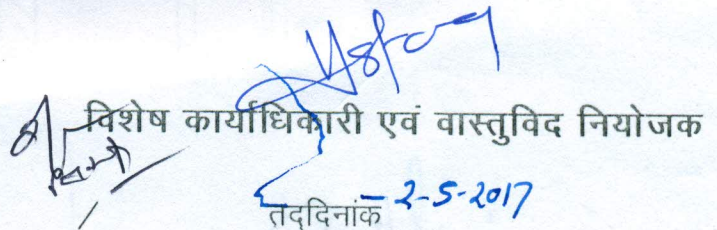 विशेष कार्याधिकारी एवं वास्तुविद नियोजक
तद्दिनांक - 2-5-2017